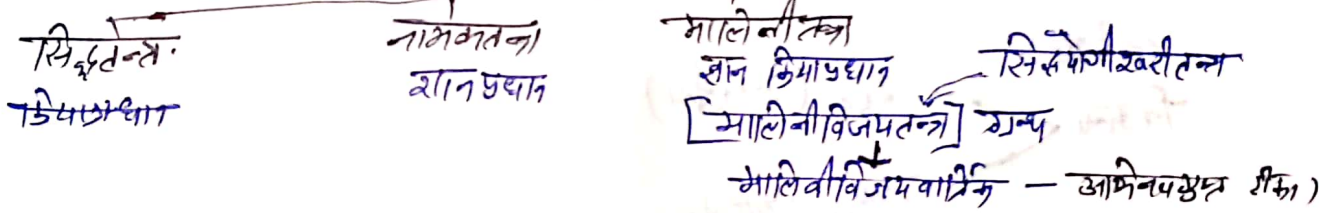 सिद्धतन्त्र. नामकतन्त्र मालिनीतन्त्र
क्रियाप्रधान ज्ञानप्रधान ज्ञान क्रियाप्रधान सिद्धयोगीश्वरीतन्त्र
[मालिनीविजयतन्त्र] ग्रन्थ
मालिनीविजयवार्तिक — अभिनवगुप्त टीका)